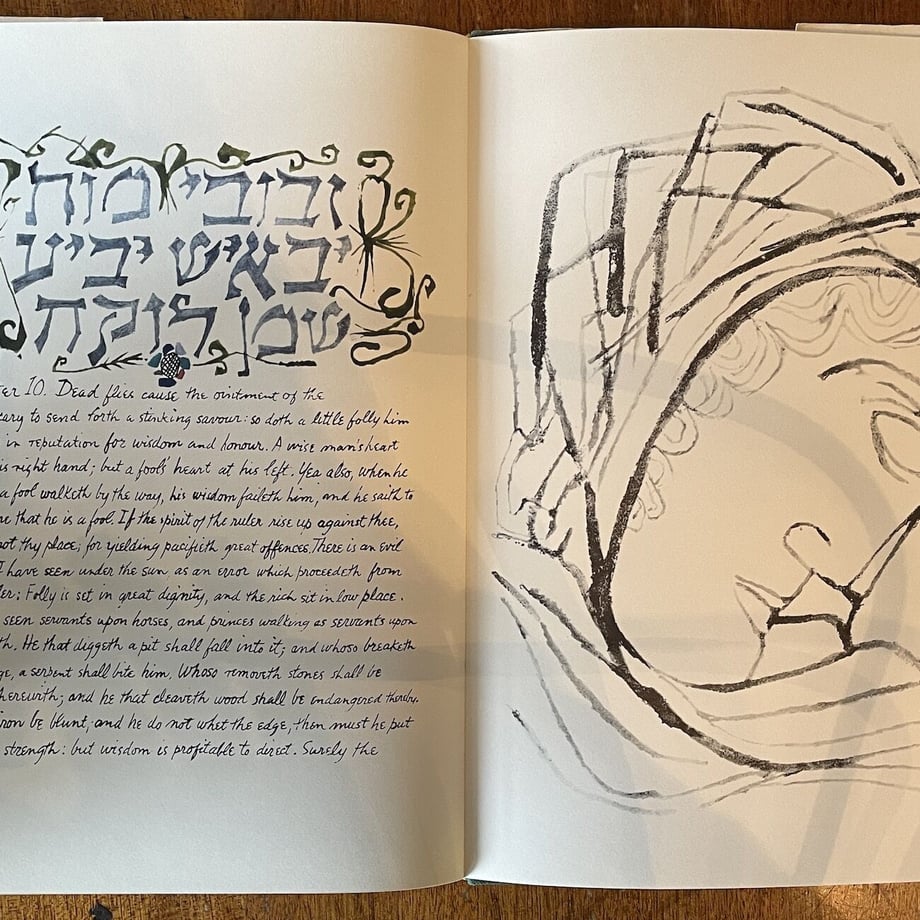 זבובי מות
יבאיש יביע
שמן רוקח
ter 10. Dead flies cause the ointment of the
cary to send forth a stinking savour: so doth a little folly him
in reputation for wisdom and honour. A wise man's heart
is right hand; but a fool's heart at his left. Yea also, when he
a fool walketh by the way, his wisdom faileth him, and he saith to
ne that he is a fool. If the spirit of the ruler rise up against thee,
not thy place; for yielding pacifieth great offences. There is an evil
I have seen under the sun, as an error which proceedeth from
ler: Folly is set in great dignity, and the rich sit in low place.
seen servants upon horses, and princes walking as servants upon
th. He that diggeth a pit shall fall into it; and whoso breaketh
ge, a serpent shall bite him. Whoso removeth stones shall be
herewith; and he that cleaveth wood shall be endangered thereby.
iron be blunt, and he do not whet the edge, then must he put
strength: but wisdom is profitable to direct. Surely the